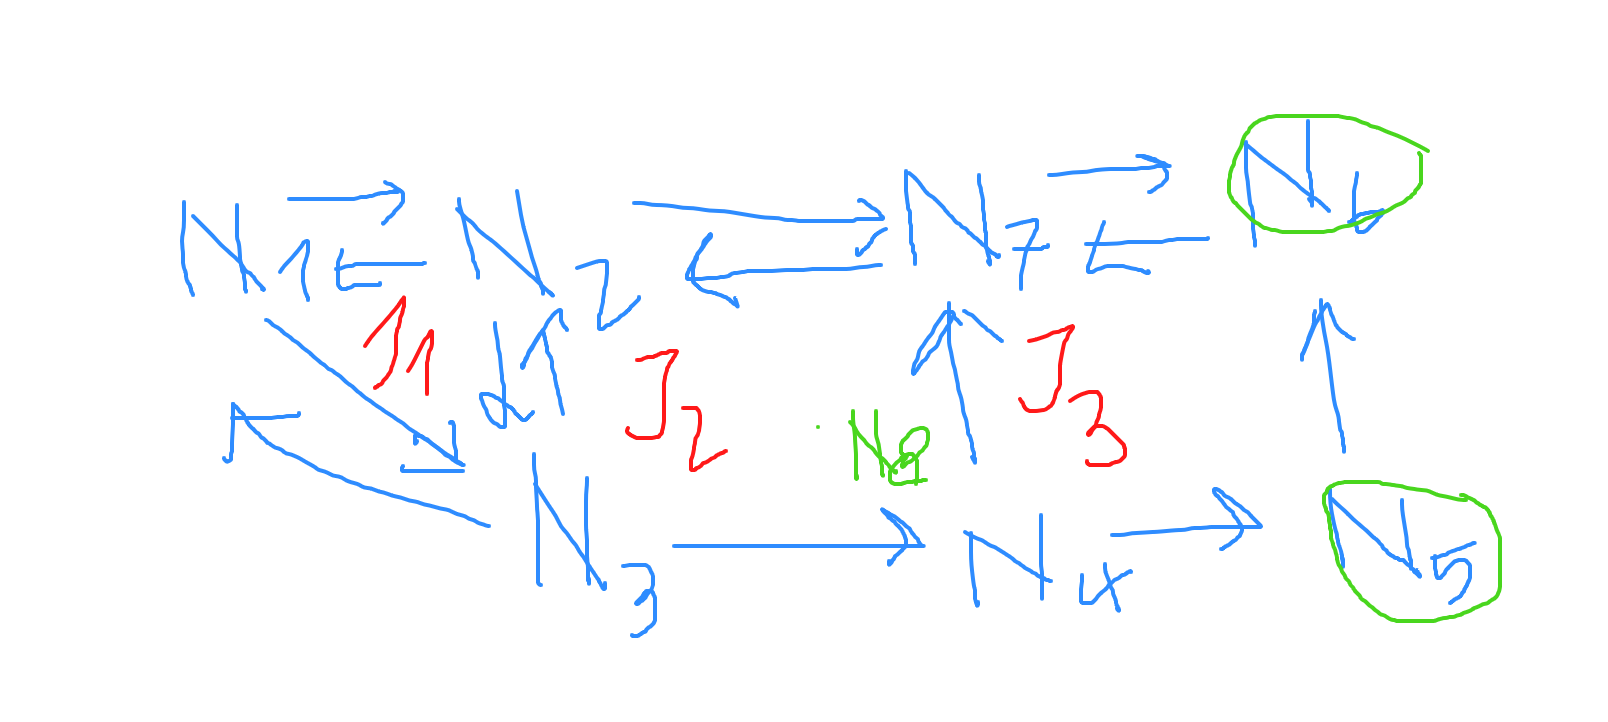 N1 N2 N7 N6
J1 J2 J3
N8
N3 N4 N5